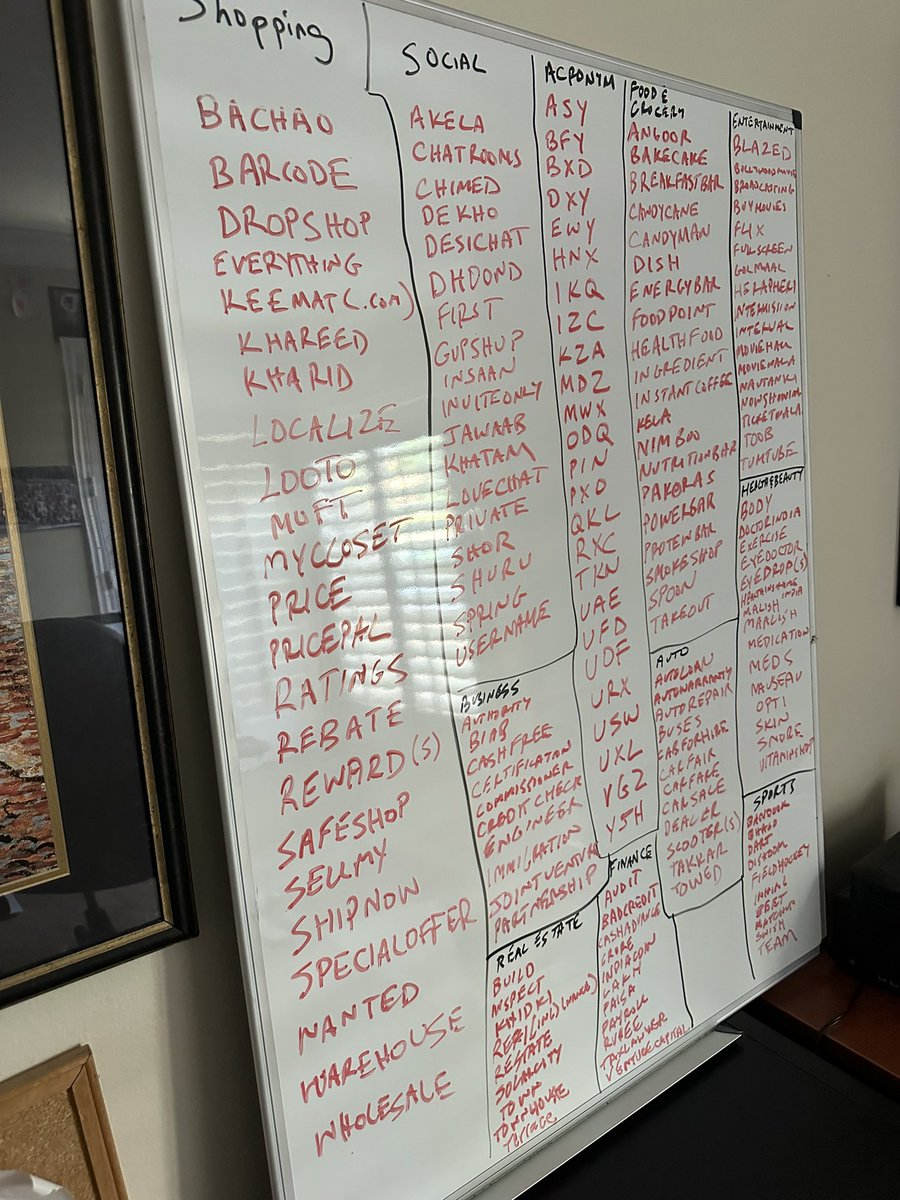 Shopping
BACHAO
BARCODE
DROPSHOP
EVERYTHING
KEEMAT(.com)
KHAREED
KHARID
LOCALIZE
LOOTO
MUFT
MYCLOSET
PRICE
PRICEPAL
RATINGS
REBATE
REWARD(S)
SAFESHOP
SELLMY
SHIPNOW
SPECIALOFFER
WANTED
WAREHOUSE
WHOLESALE
SOCIAL
AKELA
CHATROOMS
CHIMED
DEKHO
DESICHAT
DHOOND
FIRST
GUPSHUP
INSAAN
INVITEONLY
JAWAAB
KHATAM
LOVECHAT
PRIVATE
SHOR
SHURU
SPRING
USERNAME
BUSINESS
AUTHORITY
BIAB
CASHFREE
CERTIFICATION
COMMISSIONER
CREDIT CHECK
ENGINEER
IMMIGRATION
JOINTVENTURE
PARTNERSHIP
REAL ESTATE
BUILD
INSPECT
KHIDKI
RESTATE
SOLARCITY
TOWN
TOWNHOUSE
Terrace
ACRONYM
ASY
BFY
BXD
DXY
EWY
HNX
IKQ
IZC
KZA
MDZ
MWX
ODQ
PIN
PXO
QKL
RXC
TKN
UAE
UFD
UOF
URX
USW
UXL
VGZ
YSH
FINANCE
AUDIT
BADCREDIT
CASHADVANCE
CRORE
INDIACOIN
LAKH
PAISA
PAYROLL
RUPEE
TAXLAWYER
VENTURECAPITAL
FOOD &
GROCERY
ANGOOR
BAKECAKE
BREAKFASTBAR
CANDYCANE
CANDYMAN
DISH
ENERGYBAR
FOODPOINT
HEALTHFOOD
INGREDIENT
INSTANTCOFFEE
KELA
NIMBOO
NUTRITIONBAR
PAKORAS
POWERBAR
PROTEINBAR
SMOKESHOP
SPOON
TAKEOUT
AUTO
AUTOLOAN
AUTOWARRANTY
AUTOREPAIR
BUSES
CABFORHIRE
CARFAIR
CARFARE
CARSALE
DEALER
SCOOTER(S)
TAKKAR
TOWED
ENTERTAINMENT
BLAZED
BOLLYWOODMOVIE
BROADCASTING
BUYMOVIES
FLIX
FULLSCREEN
GOLMAAL
HERAPHERI
INTERMISSION
INTERVAL
MOVIEHALL
MOVIEWALA
NAUTANKI
NOWSHOWING
TICKETWALA
TOOB
TUMTUBE
HEALTH&BEAUTY
BODY
DOCTORINDIA
EXERCISE
EYEDOCTOR
EYEDROP(S)
MALISH
MAALISH
MEDICATION
MEDS
NAUSEAU
OPTI
SKIN
SNORE
VITAMINSHOP
SPORTS
DART
FIELDHOCKEY
TEAM